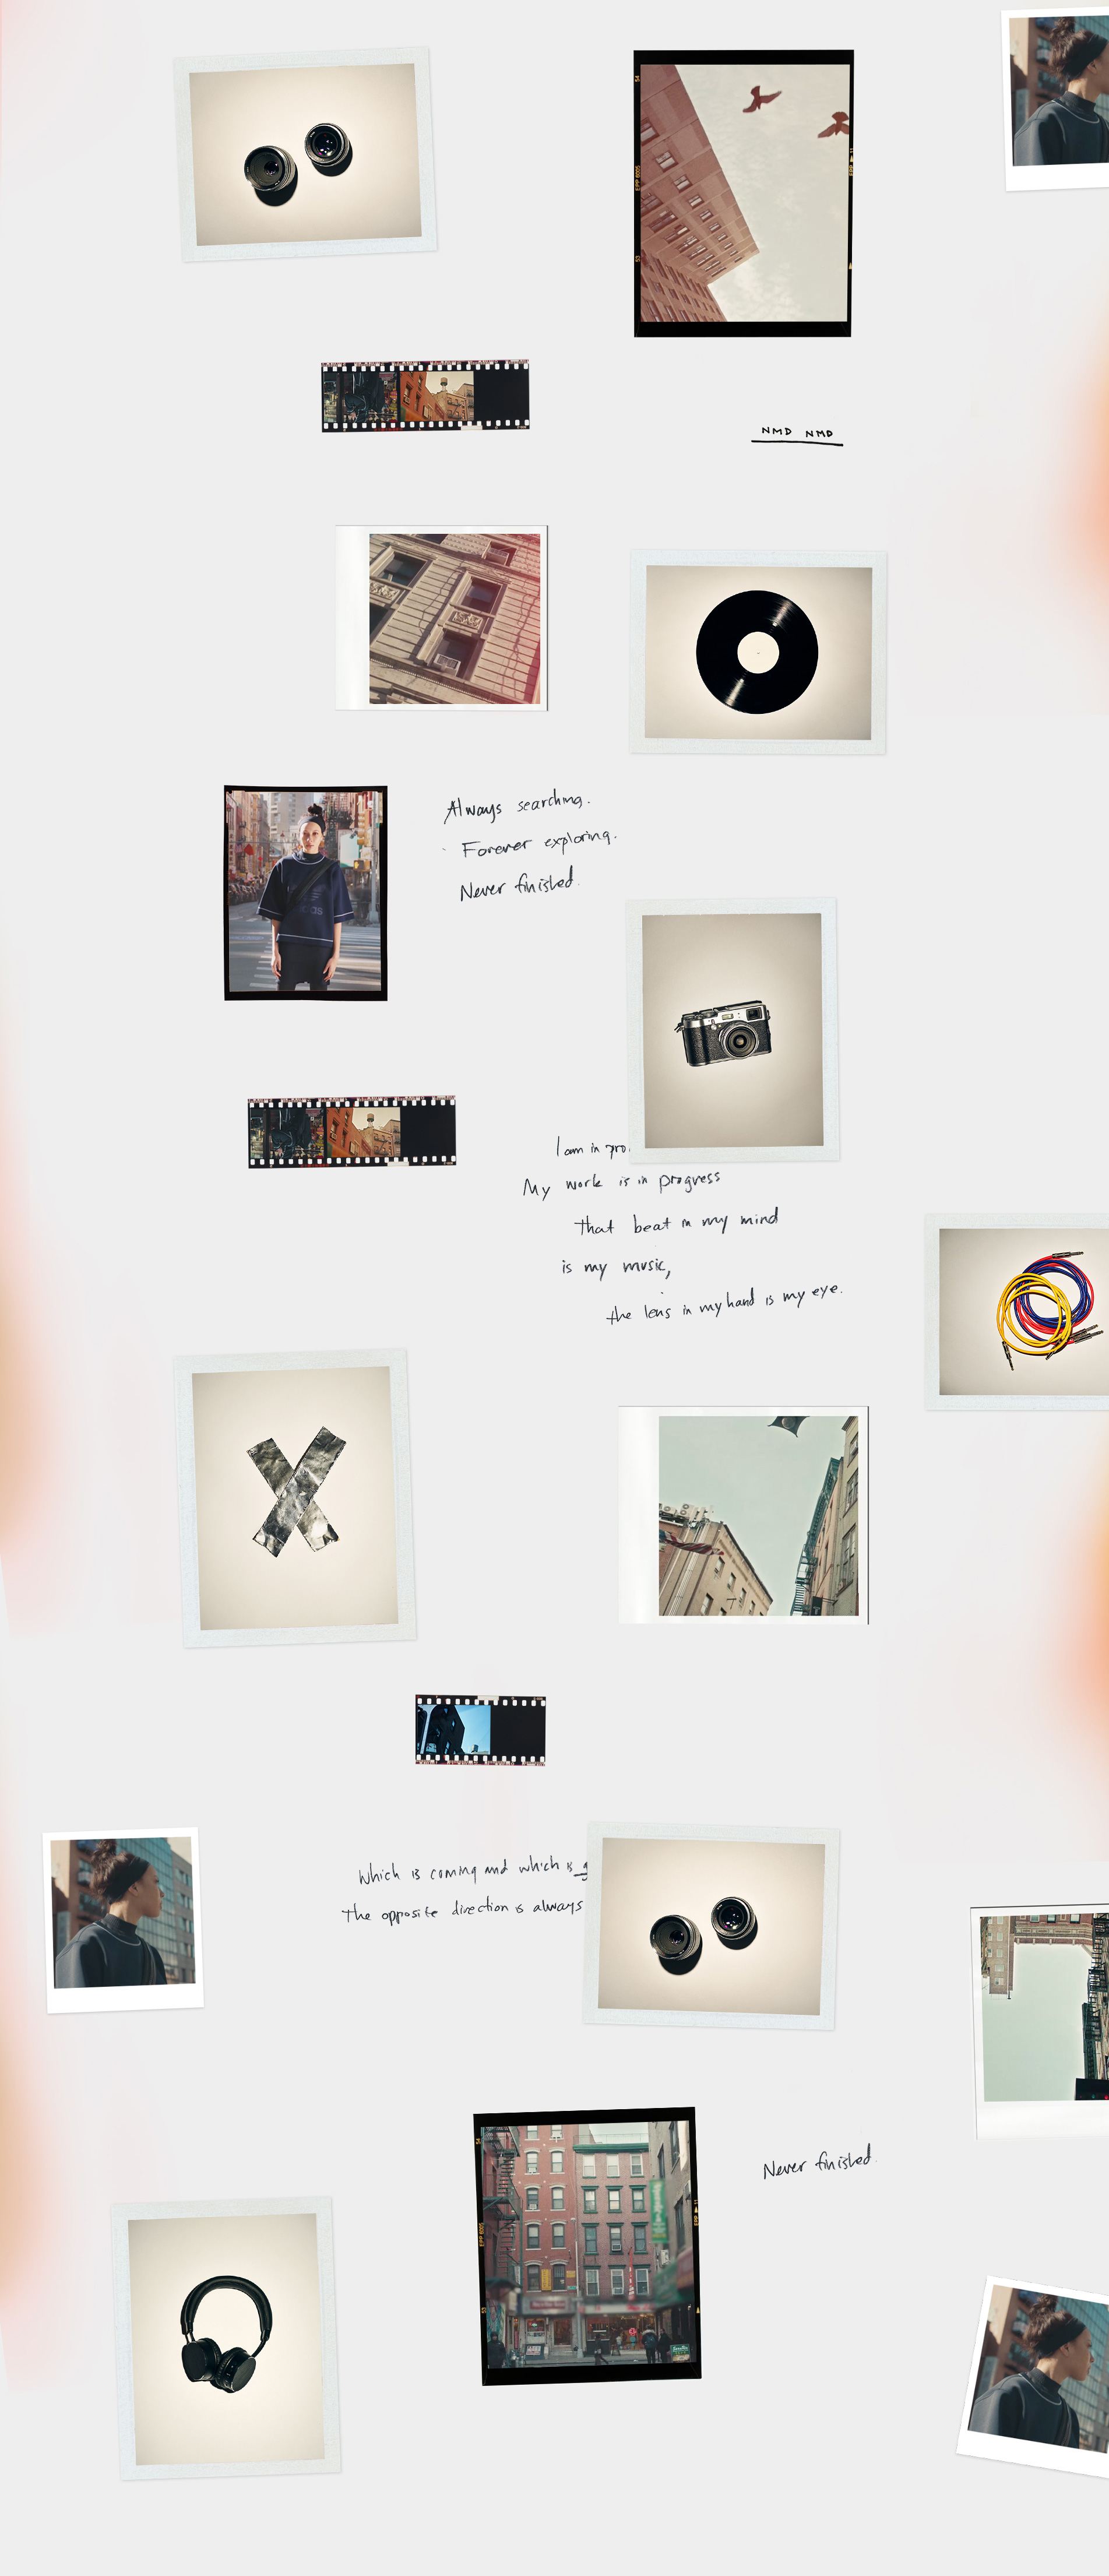 NMD NMD
Always searching.
Forever exploring.
Never finished.
I am in pro
My work is in progress
that beat in my mind
is my music,
the lens in my hand is my eye.
Which is coming and which is g
The opposite direction is always
Never finished.